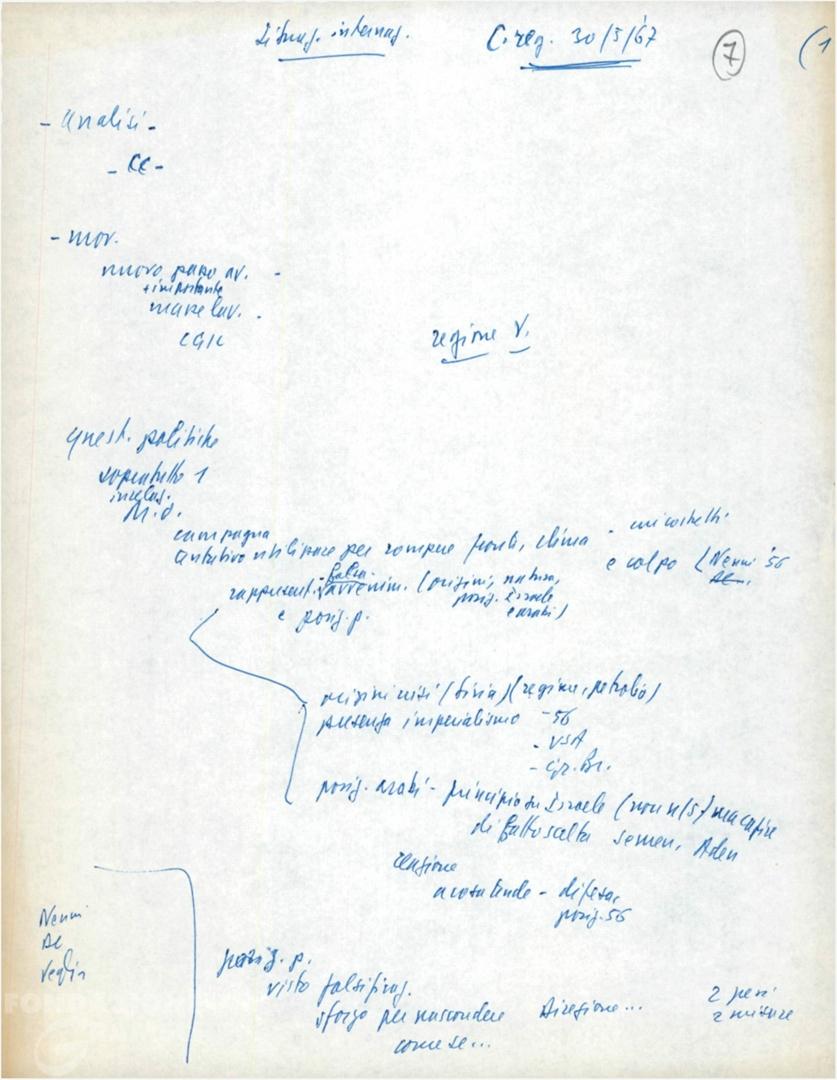 Situaz. internaz. C. reg. 30/5/67 7 (1
- Analisi -
- CC -
- mov.
nuovo passo av. -
+ importante
masse lav. -
CGIL
regione V.
quest. politiche
sopratutto 1
M.O.
campagna
tentativo utilizzare per rompere fronti, clima -
e colpo (Nenni '56
rappresent. falsa avvenim. (origini, natura,
posiz. Israele
e arabi)
e posiz. p.
origini crisi (Siria) (regime, petrolio)
presenza imperialismo - 56
- USA
- Gr. Br.
posiz. arabi - principio su Israele (non n/s) ma capire
di fatto scelta Yemen, Aden
tensione
a cosa tende - difesa,
posiz. 56
Nenni
posiz. p.
visto falsificaz.
sforzo per nascondere Direzione...
come se...
2 pesi
2 misure